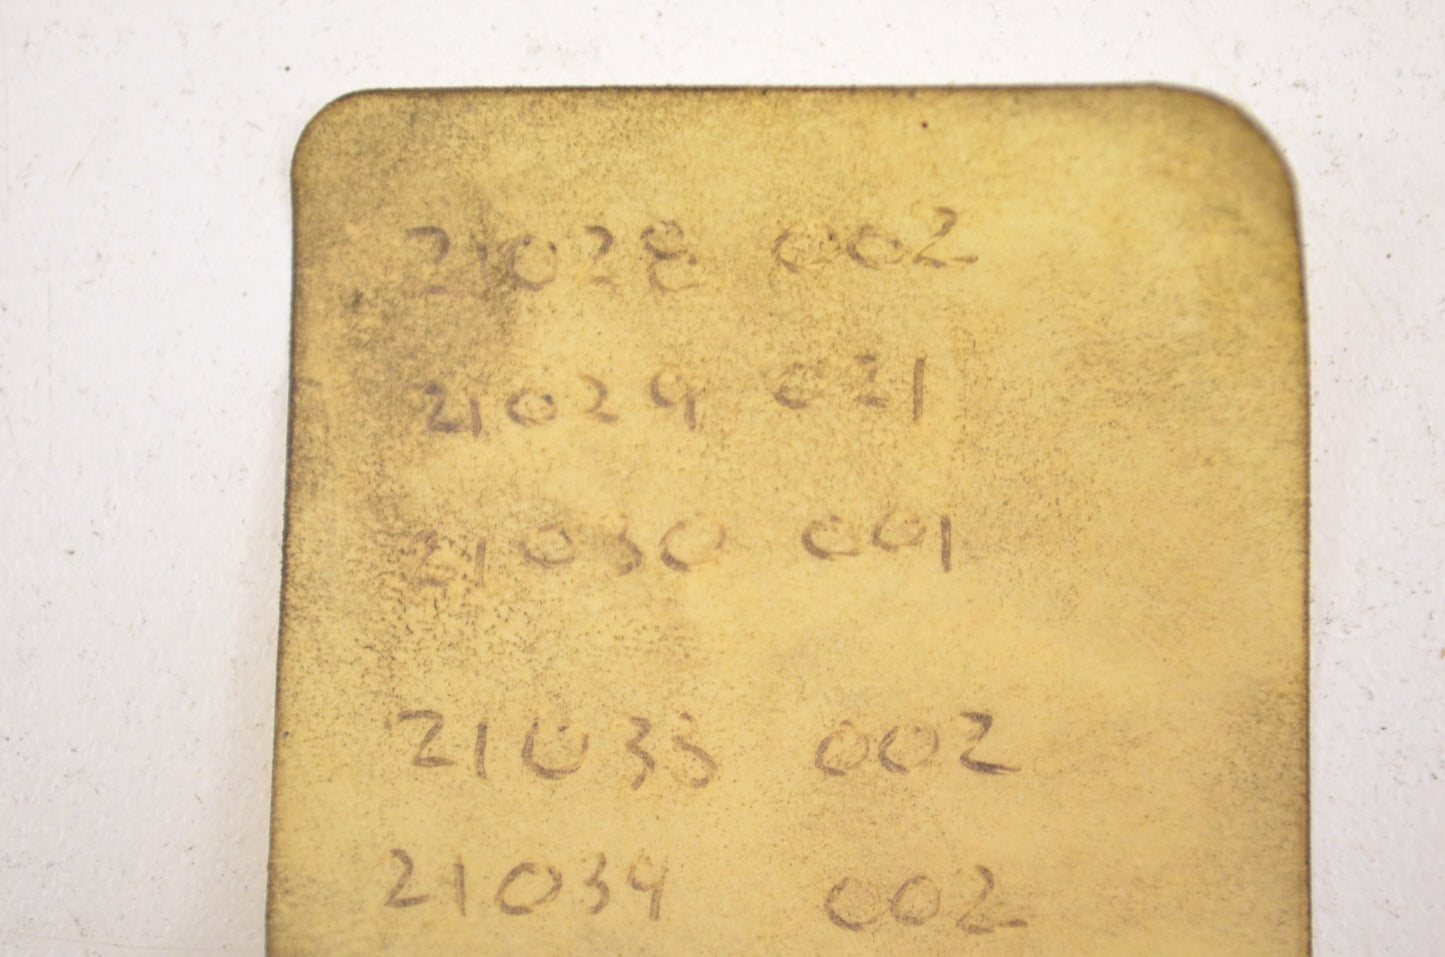 21028 002
21029 021
21030 001
21033 002
21034 002